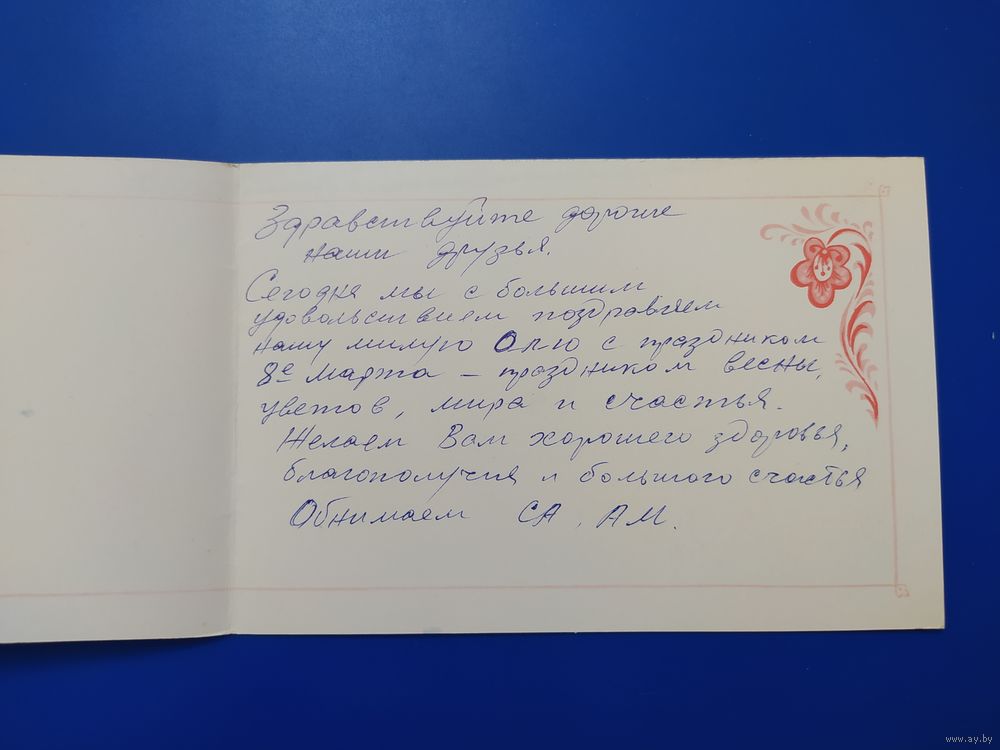 Здравствуйте дорогие
наши друзья.
Сегодня мы с большим
удовольствием поздравляем
нашу милую Олю с праздником
8е Марта – праздником весны,
цветов, мира и счастья.
Желаем Вам хорошего здоровья,
благополучия и большого счастья
Обнимаем СА, АМ.
www.ay.by